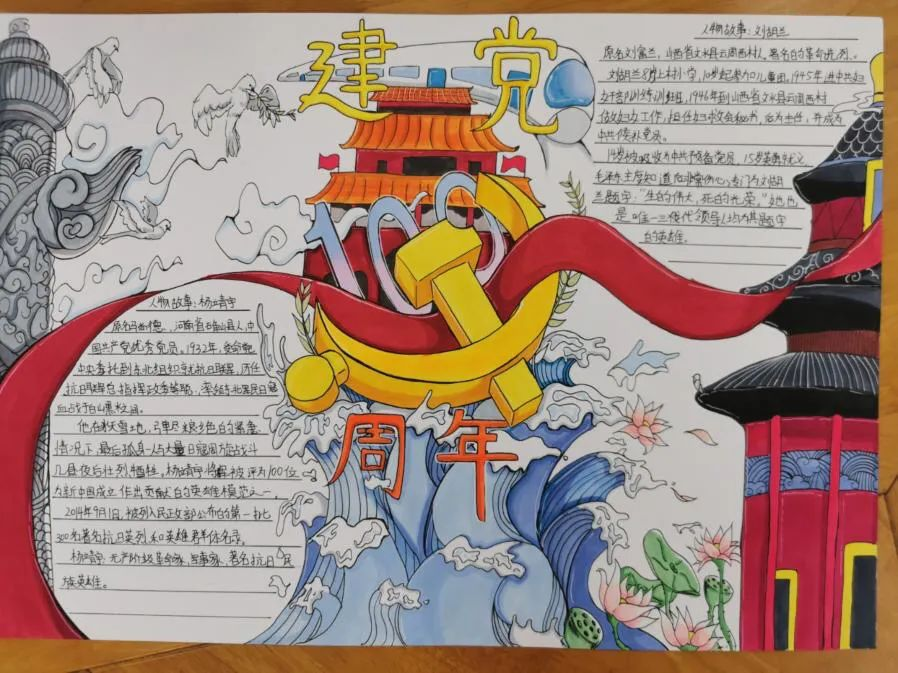 建党
100
周年
人物故事：刘胡兰
原名刘富兰，山西省文水县云周西村人。著名的革命先烈。
刘胡兰8岁上村小学，10岁起参加儿童团，1945年进中共妇
女干部训练训班，1946年到山西省文水县云周西村
做妇女工作，担任妇救会秘书，后为主任，并成为
中共候补党员。
14岁被吸收为中共预备党员，15岁英勇就义
毛泽东主席知道后非常伤心，专门为刘胡
兰题字："生的伟大，死的光荣。"她也
是唯一三代领导人均为其题字
的英雄。
人物故事：杨靖宇
原名马尚德，河南省确山县人，中
国共产党优秀党员，1932年，受命党
中央委托到东北组织抗日联军，历任
抗日联军总指挥政委等职，率领东北军民日寇
血战于白山黑水之间。
他在秋雪地，弹尽粮绝的紧急
情况下，最后孤身一人与大量日寇周旋战斗
几昼夜后壮烈牺牲，杨靖宇将军被评为100位
为新中国成立作出贡献的英雄模范之一，
2014年9月1日，被列入民政部公布的第一批
300名著名抗日英烈和英雄群体名录，
杨靖宇：无产阶级革命家、军事家、著名抗日民
族英雄。